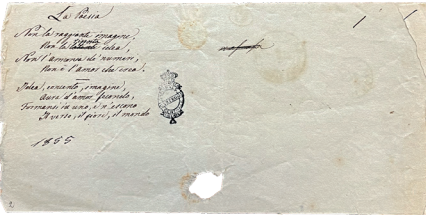 La Poesia
Non la raggiante imagine,
Non la vivente idea,
Non l'armonia de' numeri,
Non è l'amor che crea,
Idea, concento, imagine,
Aura d'amor fecondo,
Formansi in uno, e n'escono
Il verso, il fiore, il mondo
1855
2